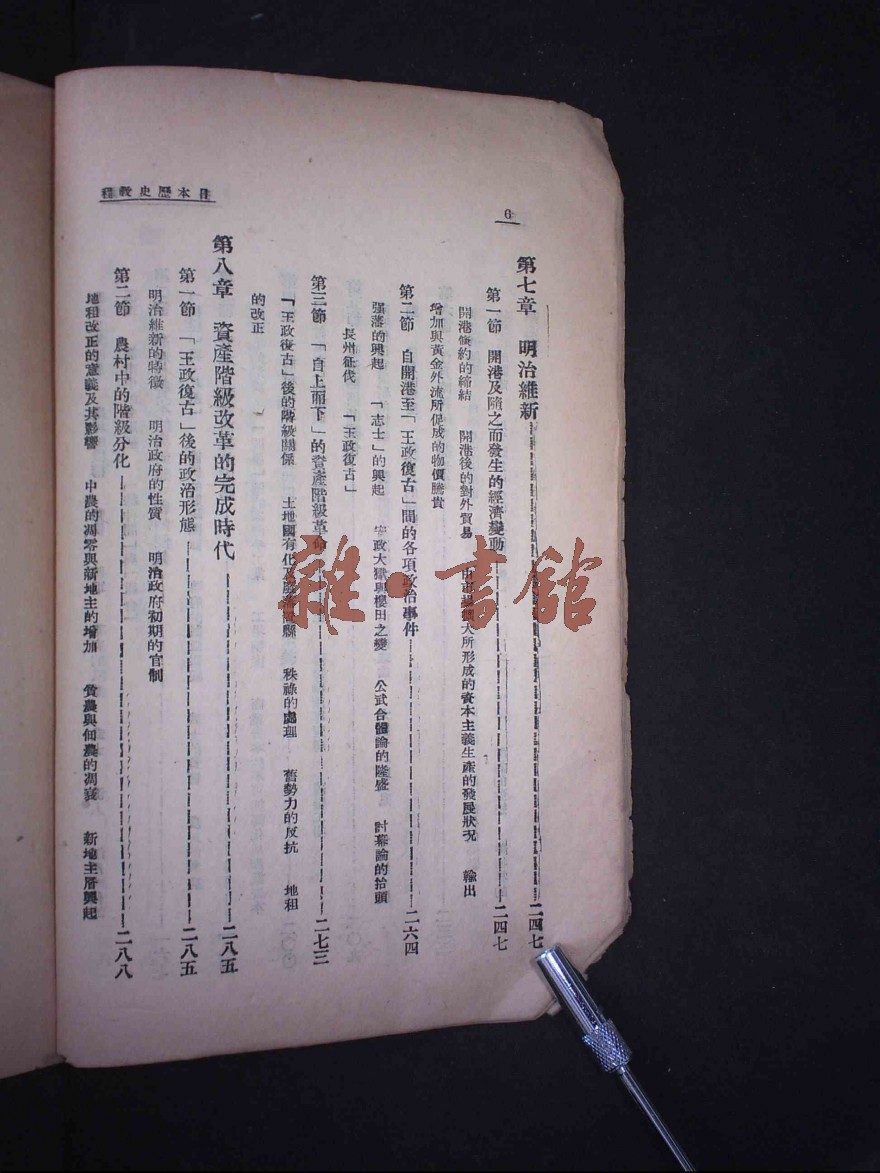 日本歷史教程
6
第七章 明治維新 二四七
第一節 開港及隨之而發生的經濟變動 二四七
開港條約的締結 開港後的對外貿易 由市場擴大所形成的資本主義生產的發展狀況 輸出
增加與黃金外流所促成的物價騰貴
第二節 自開港至「王政復古」間的各項政治事件 二六四
强藩的興起 「志士」的興起 安政大獄與櫻田之變 公武合體論的隆盛 討幕論的抬頭
長州征伐 「王政復古」
第三節 「自上而下」的資產階級革命 二七三
「王政復古」後的階級關係 土地國有化及廢藩置縣 秩祿的處理 舊勢力的反抗 地租
的改正
第八章 資產階級改革的完成時代 二八五
第一節 「王政復古」後的政治形態 二八五
明治維新的特徵 明治政府的性質 明治政府初期的官制
第二節 農村中的階級分化 二八八
地租改正的意義及其影響 中農的凋零與新地主的增加 貧農與佃農的凋衰 新地主層興起
雜·書館